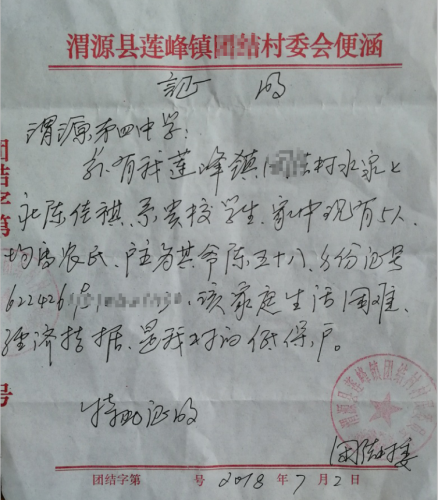 渭源县莲峰镇团结村委会便函
证 明
渭源第四中学：
兹有我莲峰镇 结村水泉上
永陈佳祺，系贵校学生，家中现有5人，
均为农民、户主为其爷陈五十八、身份证号
622426 ，该家庭生活困难、
经济拮据、是我村的低保户。
特此证明
渭源县莲峰镇团结村
团结村委
团结字第 号 2018 年 7 月 2 日
团结字第
号